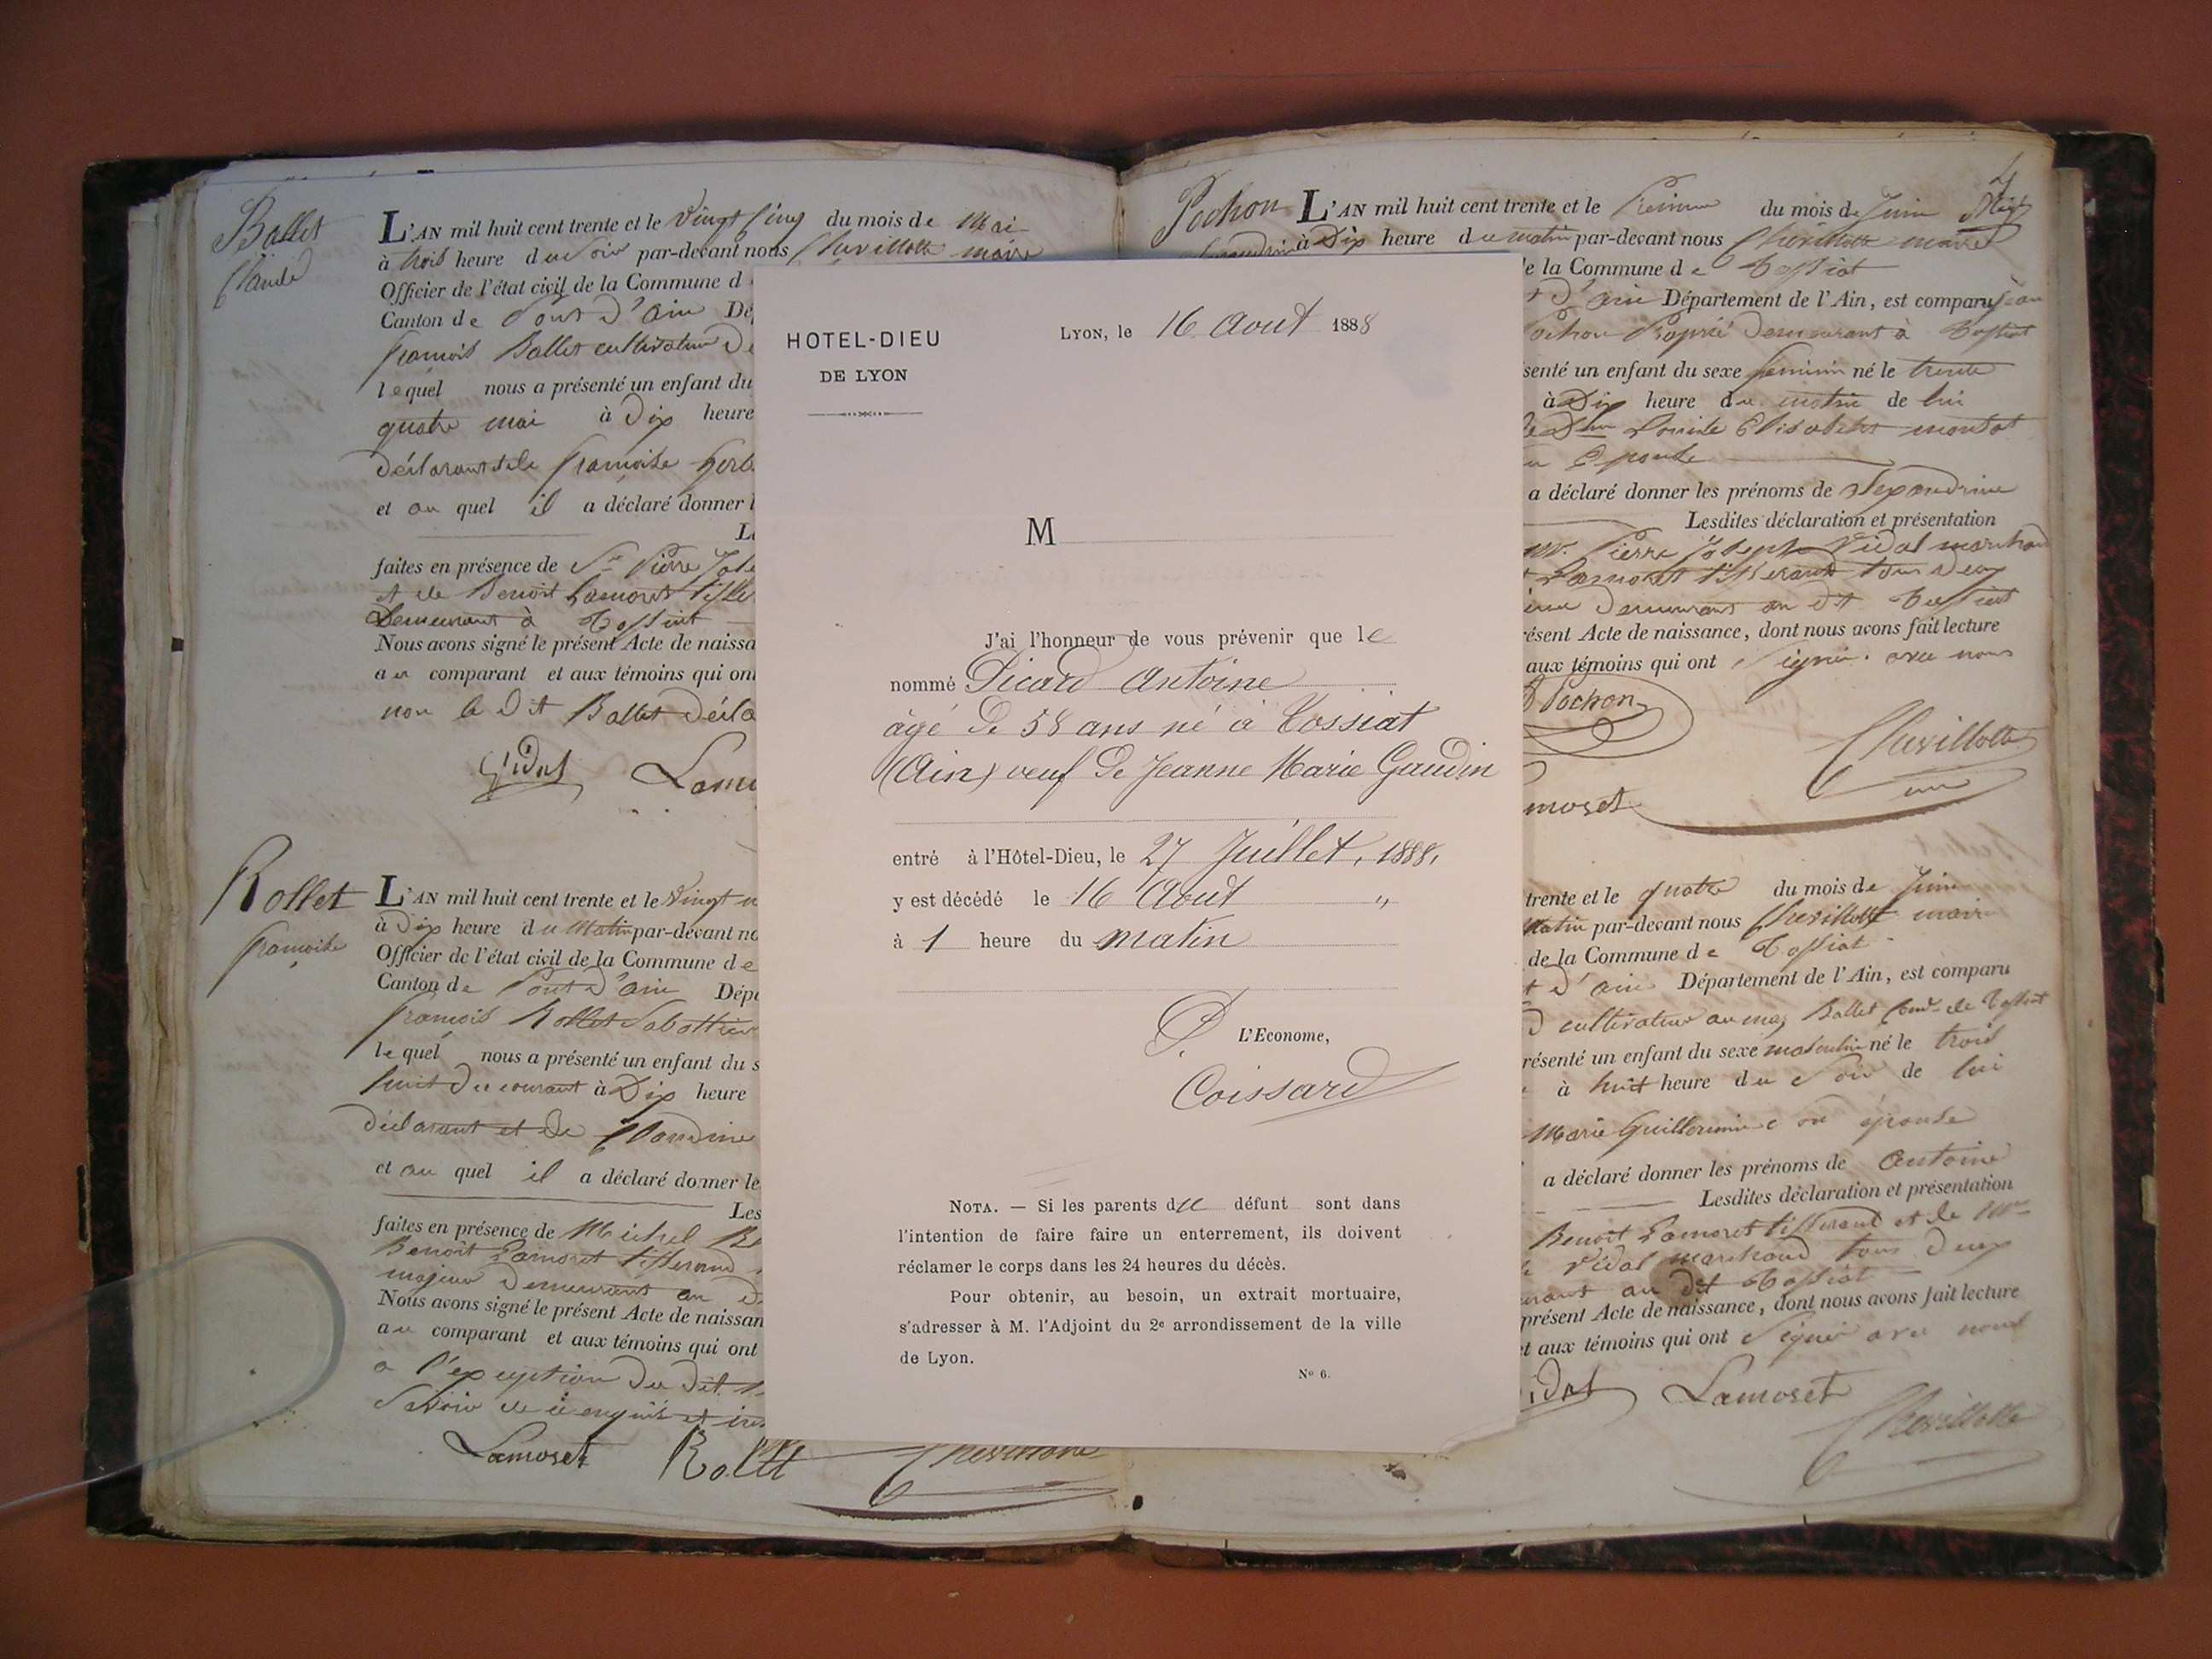 Ballet
Claude
L'AN mil huit cent trente et le Vingt Cinq du mois de Mai
à trois heure du Soir par-devant nous Chevillotte maire
Officier de l'état civil de la Commune d
Canton de Pont d'ain Dé
françois Ballet cultivateur De
lequel nous a présenté un enfant du
quatre mai à Dix heure
Déclarant et de françoise
et au quel il a déclaré donner l
faites en présence de Sr Pierre
et de Benoit Lamoret
Demeurant à Tossiat
Nous avons signé le présent Acte de naissa
au comparant et aux témoins qui ont
non le dit Ballet Décla
Vidal
Rollet
françoise
L'AN mil huit cent trente et le Vingt n
à Dix heure du Matin par-devant no
Officier de l'état civil de la Commune de
Canton de Pont d'ain Dépa
françois Rollet Sabottier
lequel nous a présenté un enfant du s
huit du courant à Dix heure
déclarant et de Claudine
et au quel il a déclaré donner le
Les
faites en présence de Michel
Benoit Lamoret tisserand
majeur Demeurant au D
Nous avons signé le présent Acte de naissan
au comparant et aux témoins qui ont
à l'exception du dit
Savoir de ce enquis et
Lamoret Rollet Chevillotte
HOTEL-DIEU
DE LYON
LYON, le 16 Aout 1888
M
J'ai l'honneur de vous prévenir que le
nommé Picard Antoine
âgé de 58 ans né à Tossiat
(Ain) veuf de Jeanne Marie Gaudin
entré à l'Hôtel-Dieu, le 27 Juillet, 1888,
y est décédé le 16 Aout "
à 1 heure du matin
P. L'Econome,
Coissard
NOTA. — Si les parents du défunt sont dans
l'intention de faire faire un enterrement, ils doivent
réclamer le corps dans les 24 heures du décès.
Pour obtenir, au besoin, un extrait mortuaire,
s'adresser à M. l'Adjoint du 2e arrondissement de la ville
de Lyon.
No 6.
Pochon
L'AN mil huit cent trente et le Premier du mois de Juin
à Dix heure du matin par-devant nous Chevillotte maire
de la Commune de Tossiat
d'ain Département de l'Ain, est comparu Jean
Pochon Demeurant à Tossiat
senté un enfant du sexe feminin né le trente
à Dix heure du matin de lui
Elisabeth montat
Epouse
a déclaré donner les prénoms de Alexandrine
Lesdites déclaration et présentation
Pierre Joseph Vidal marchand
Lamoret tisserand tous deux
Demeurant au dit Tossiat
résent Acte de naissance, dont nous avons fait lecture
aux témoins qui ont signé avec nous
Pochon
Chevillotte
moret
trente et le quatre du mois de Juin
Matin par-devant nous Chevillotte maire
de la Commune de Tossiat
d'ain Département de l'Ain, est comparu
cultivateur au Ballet de Tossiat
résenté un enfant du sexe masculin né le trois
à huit heure du Soir de lui
Marie Guillermin son épouse
a déclaré donner les prénoms de Antoine
Lesdites déclaration et présentation
Benoit Lamoret tisserand et de
Vidal marchand tous deux
au dit Tossiat
présent Acte de naissance, dont nous avons fait lecture
et aux témoins qui ont Signé avec nous
Vidal Lamoret
Chevillotte